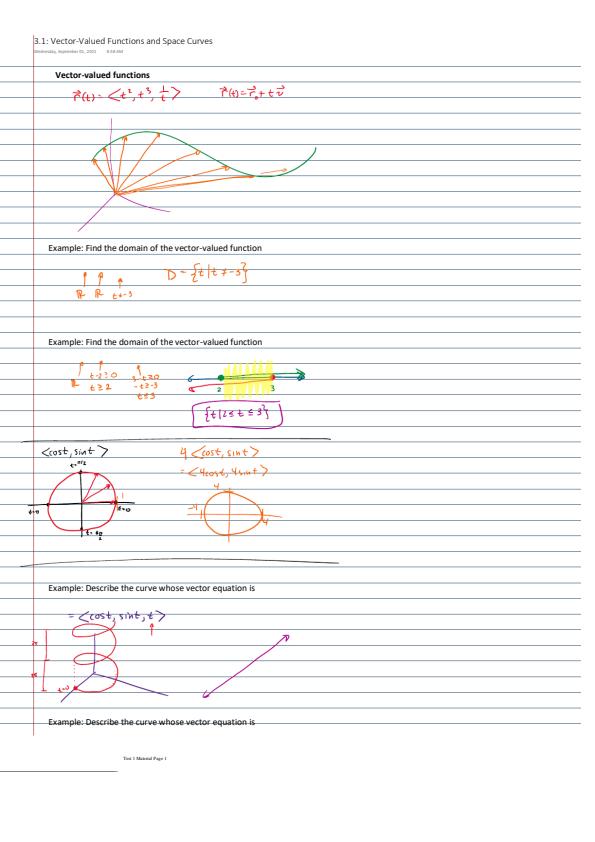 3.1: Vector-Valued Functions and Space Curves
Wednesday, September 01, 2021 8:58 AM
Vector-valued functions
r⃗(t) = <t², t³, 1/t> r⃗(t) = r⃗₀ + t v⃗
Example: Find the domain of the vector-valued function
D = {t | t ≠ -3}
ℝ ℝ t≠-3
Example: Find the domain of the vector-valued function
ℝ t-2≥0 3-t≥0
t≥2 -t≥-3
t≤3
2 3
{t | 2 ≤ t ≤ 3}
<cost, sint> 4 <cost, sint>
= <4cost, 4sint>
t=π/2 4
1 -4 4
t=π t=0
Example: Describe the curve whose vector equation is
= <cost, sint, t>
2π
2π
t=0
Example: Describe the curve whose vector equation is
Test 1 Material Page 1